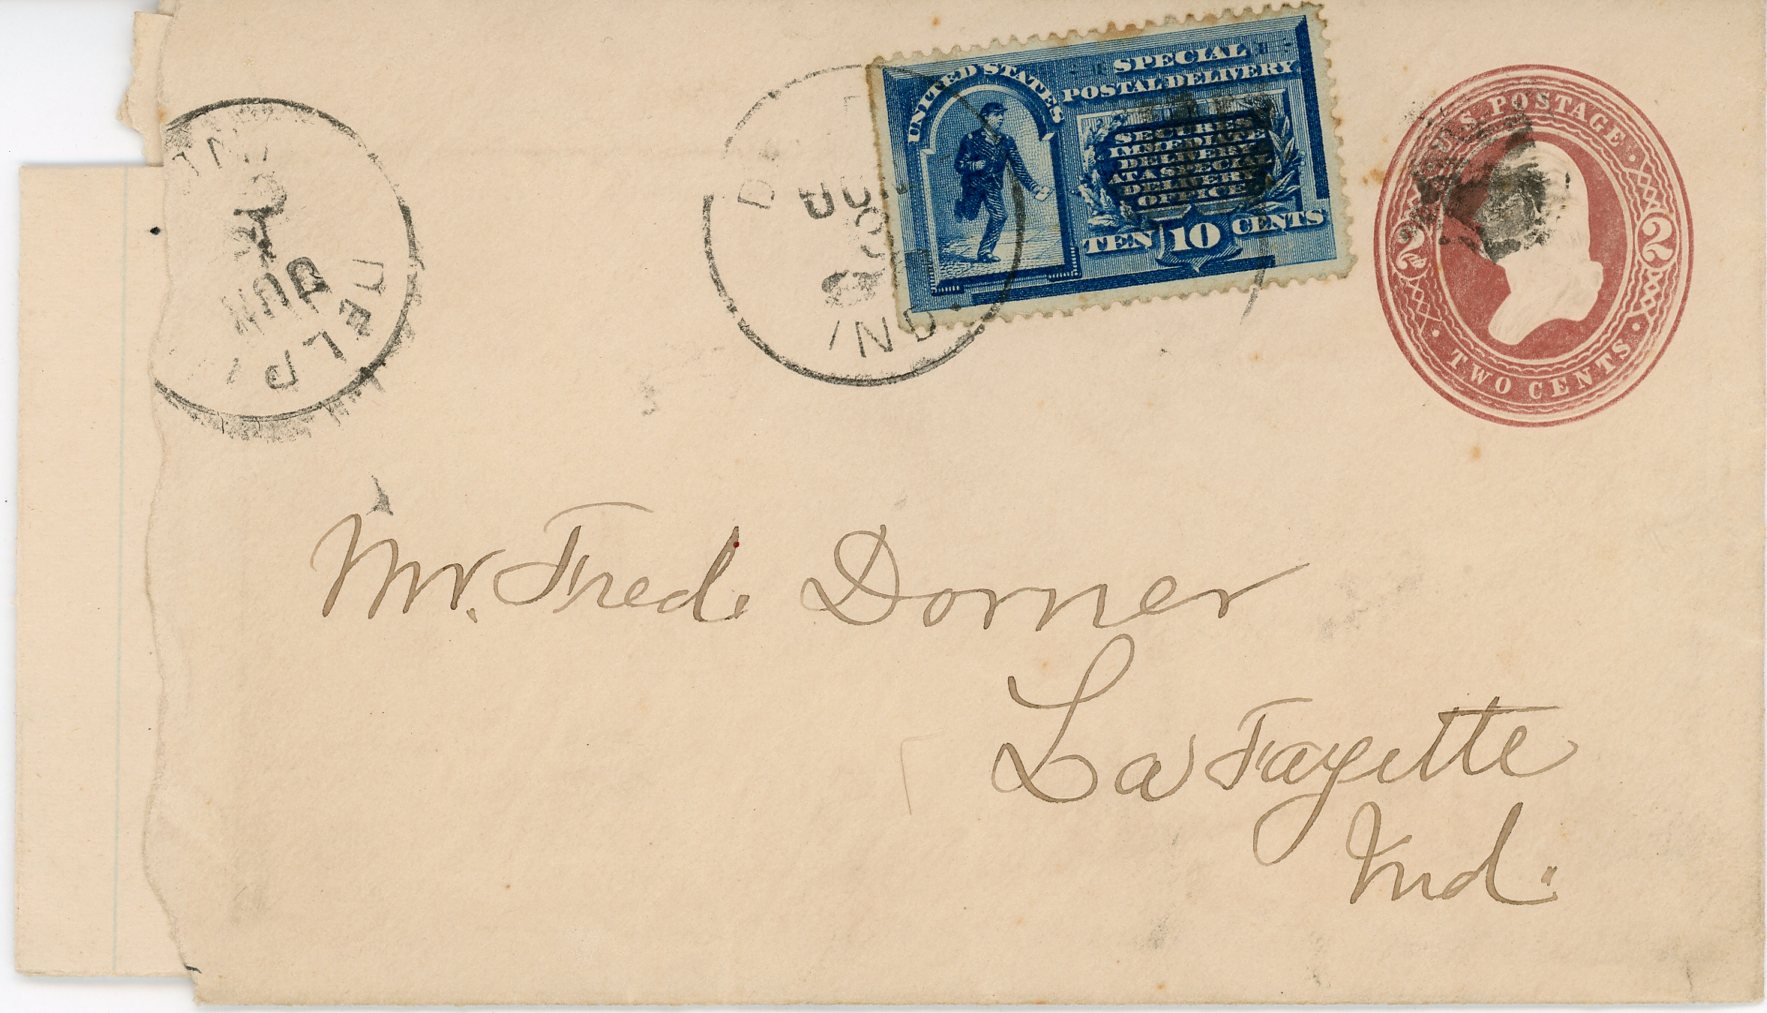 UNITED STATES
SPECIAL
POSTAL DELIVERY
SECURES
IMMEDIATE
DELIVERY
AT A SPECIAL
DELIVERY
OFFICE
TEN 10 CENTS
U.S. POSTAGE
2 2
TWO CENTS
JUN
IND
DELP
JUN
Mr. Fred Dorner
La Fayette
Ind.